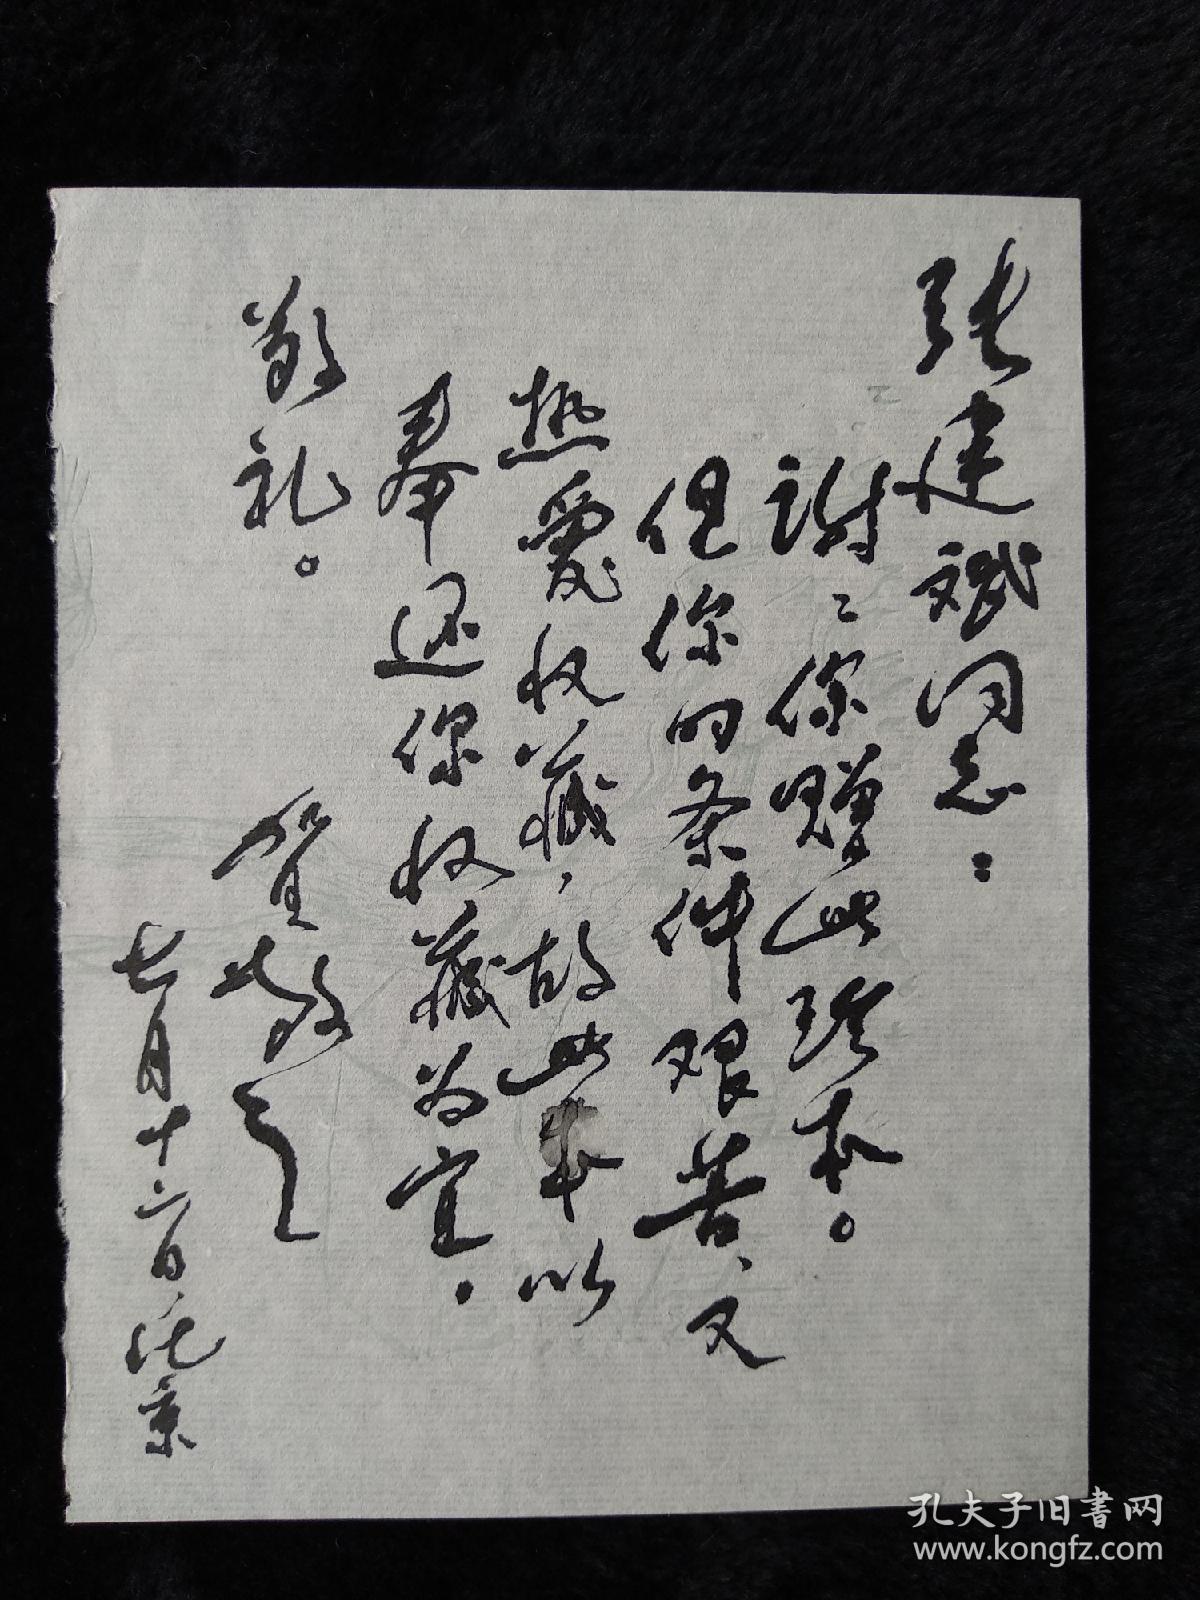 张建斌同志：
谢〻你赠此珍本。
但你的条件艰苦、又
热爱收藏，故此本以
奉还你收藏为宜。
敬礼。
贺敬之
七月十六日北京
孔夫子旧書网
www.kongfz.com